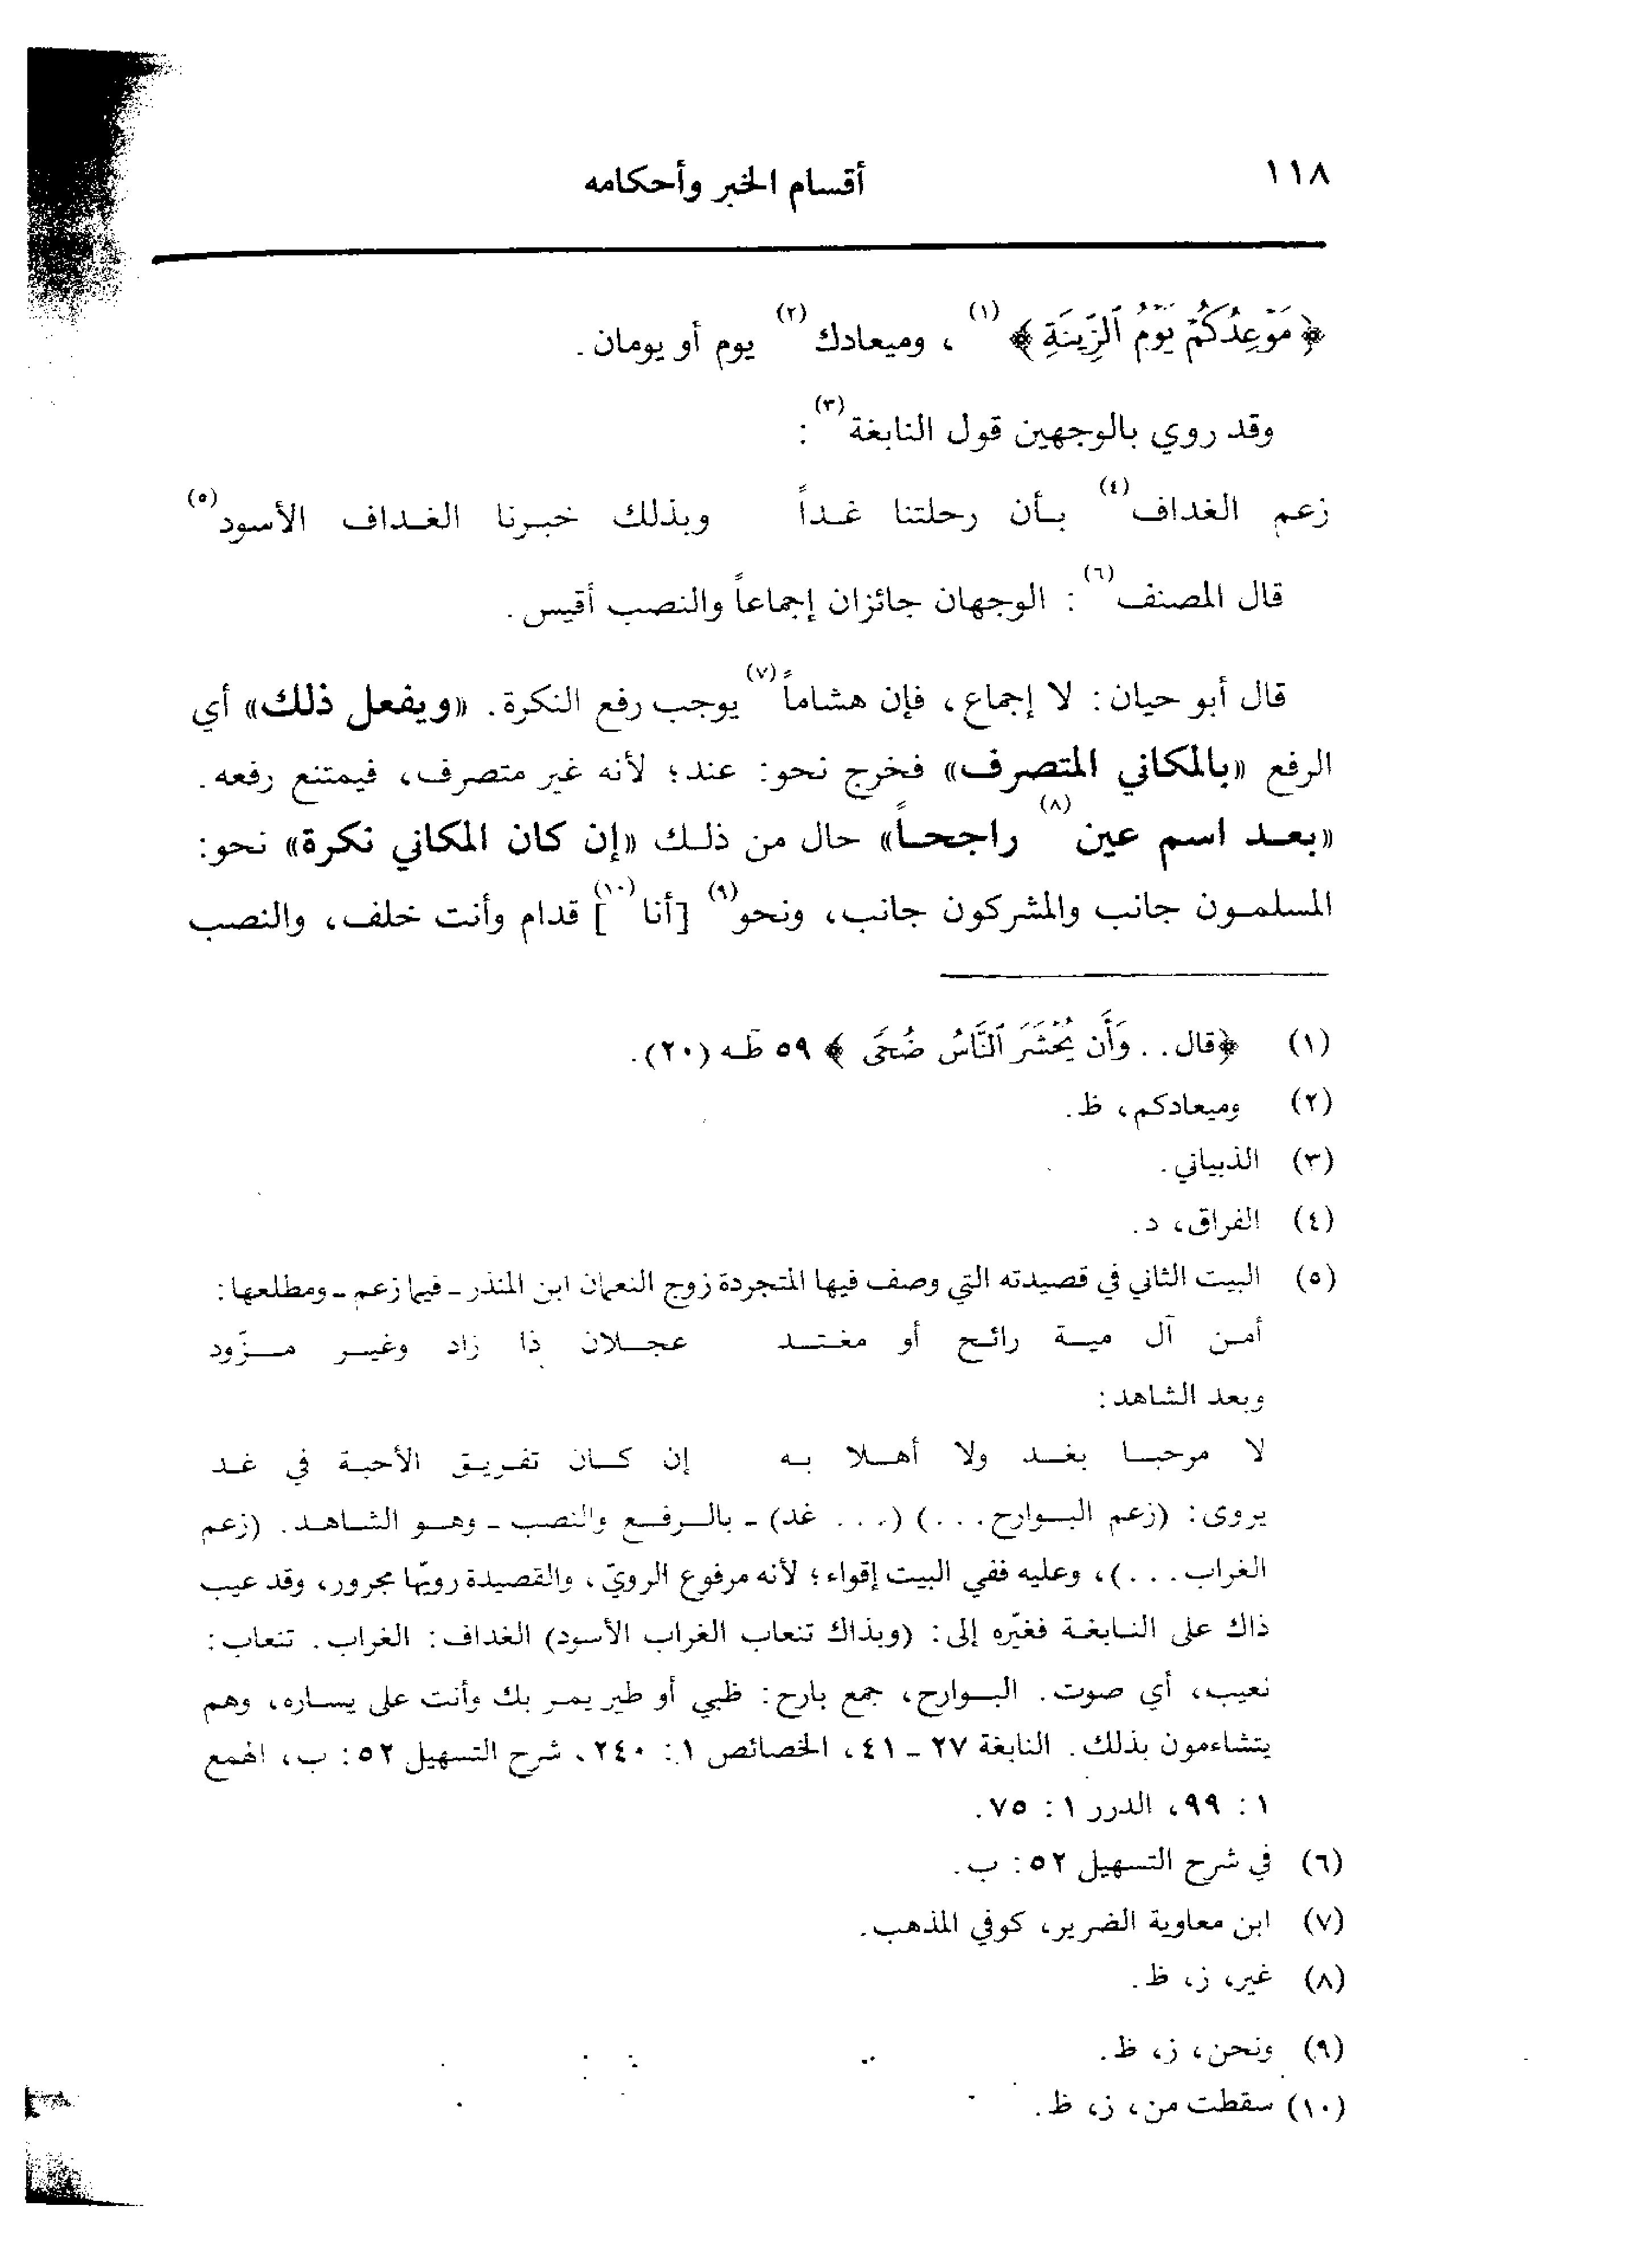 ١١٨
أقسام الخبر وأحكامه
﴿مَوْعِدُكُمْ يَوْمُ ٱلزِّينَةِ﴾ (١) ، وميعادك (٢) يوم أو يومان.
وقد روي بالوجهين قول النابغة (٣) :
زعم الغداف (٤) بـأن رحلتنا غـداً وبذلك خبـرنا الغـداف الأسود (٥)
قال المصنف (٦) : الوجهان جائزان إجماعاً والنصب أقيس.
قال أبو حيان: لا إجماع، فإن هشاماً (٧) يوجب رفع النكرة. «ويفعل ذلك» أي
الرفع «بالمكاني المتصرف» فخرج نحو: عند؛ لأنه غير متصرف، فيمتنع رفعه.
«بعـد اسم عين (٨) راجحـاً» حال من ذلـك «إن كان المكاني نكرة» نحو:
المسلمـون جانب والمشركون جانب، ونحو (٩) [أنا (١٠)] قدام وأنت خلف، والنصب
(١) ﴿قال. . وَأَن يُحْشَرَ ٱلنَّاسُ ضُحًى﴾ ٥٩ طه (٢٠).
(٢) وميعادكم، ظ.
(٣) الذبياني.
(٤) الفراق، د.
(٥) البيت الثاني في قصيدته التي وصف فيها المتجردة زوج النعمان ابن المنذر ـ فيما زعم ـ ومطلعها:
أمـن آل ميـة رائـح أو مغتـد عجـلان ذا زاد وغيـر مـزّود
وبعد الشاهد:
لا مرحبـا بغـد ولا أهـلا بـه إن كـان تفـريـق الأحبـة في غـد
يروى: (زعم البـوارح. . .) (. . . غد) ـ بالـرفـع والنصب ـ وهـو الشـاهـد. (زعم
الغراب. . .)، وعليه ففي البيت إقواء؛ لأنه مرفوع الرويّ، والقصيدة رويّها مجرور، وقد عيب
ذاك على النـابغـة فغيّره إلى: (وبذاك تنعاب الغراب الأسود) الغداف: الغراب. تنعاب:
نعيب، أي صوت. البـوارح، جمع بارح: ظبي أو طير يمـر بك وأنت على يسـاره، وهم
يتشاءمون بذلك. النابغة ٢٧ ـ ٤١، الخصائص ١: ٢٤٠، شرح التسهيل ٥٢: ب، الهمع
١ : ٩٩، الدرر ١: ٧٥.
(٦) في شرح التسهيل ٥٢: ب.
(٧) ابن معاوية الضرير، كوفي المذهب.
(٨) غير، ز، ظ.
(٩) ونحن، ز، ظ.
(١٠) سقطت من، ز، ظ.